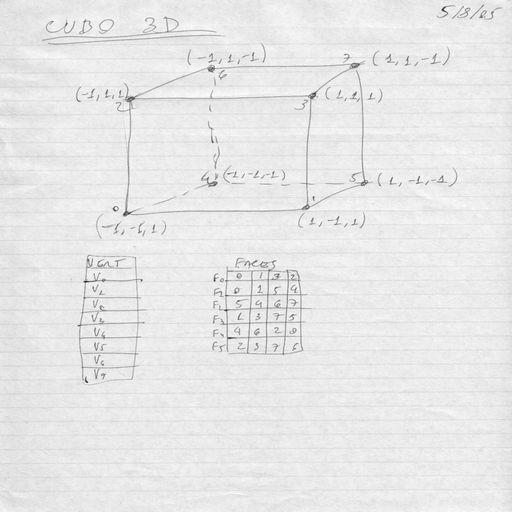 CUBO 3D
5/8/05
(-1,1,-1)
7 (1,1,-1)
6
(-1,1,1)
2
3 (1,1,1)
4 (-1,-1,-1)
5 (1,-1,-1)
0
1
(-1,-1,1)
(1,-1,1)
VERT
V0
V1
V2
V3
V4
V5
V6
V7
FACES
F0 0 1 3 2
F1 0 1 5 4
F2 5 4 6 7
F3 1 3 7 5
F4 4 6 2 0
F5 2 3 7 6